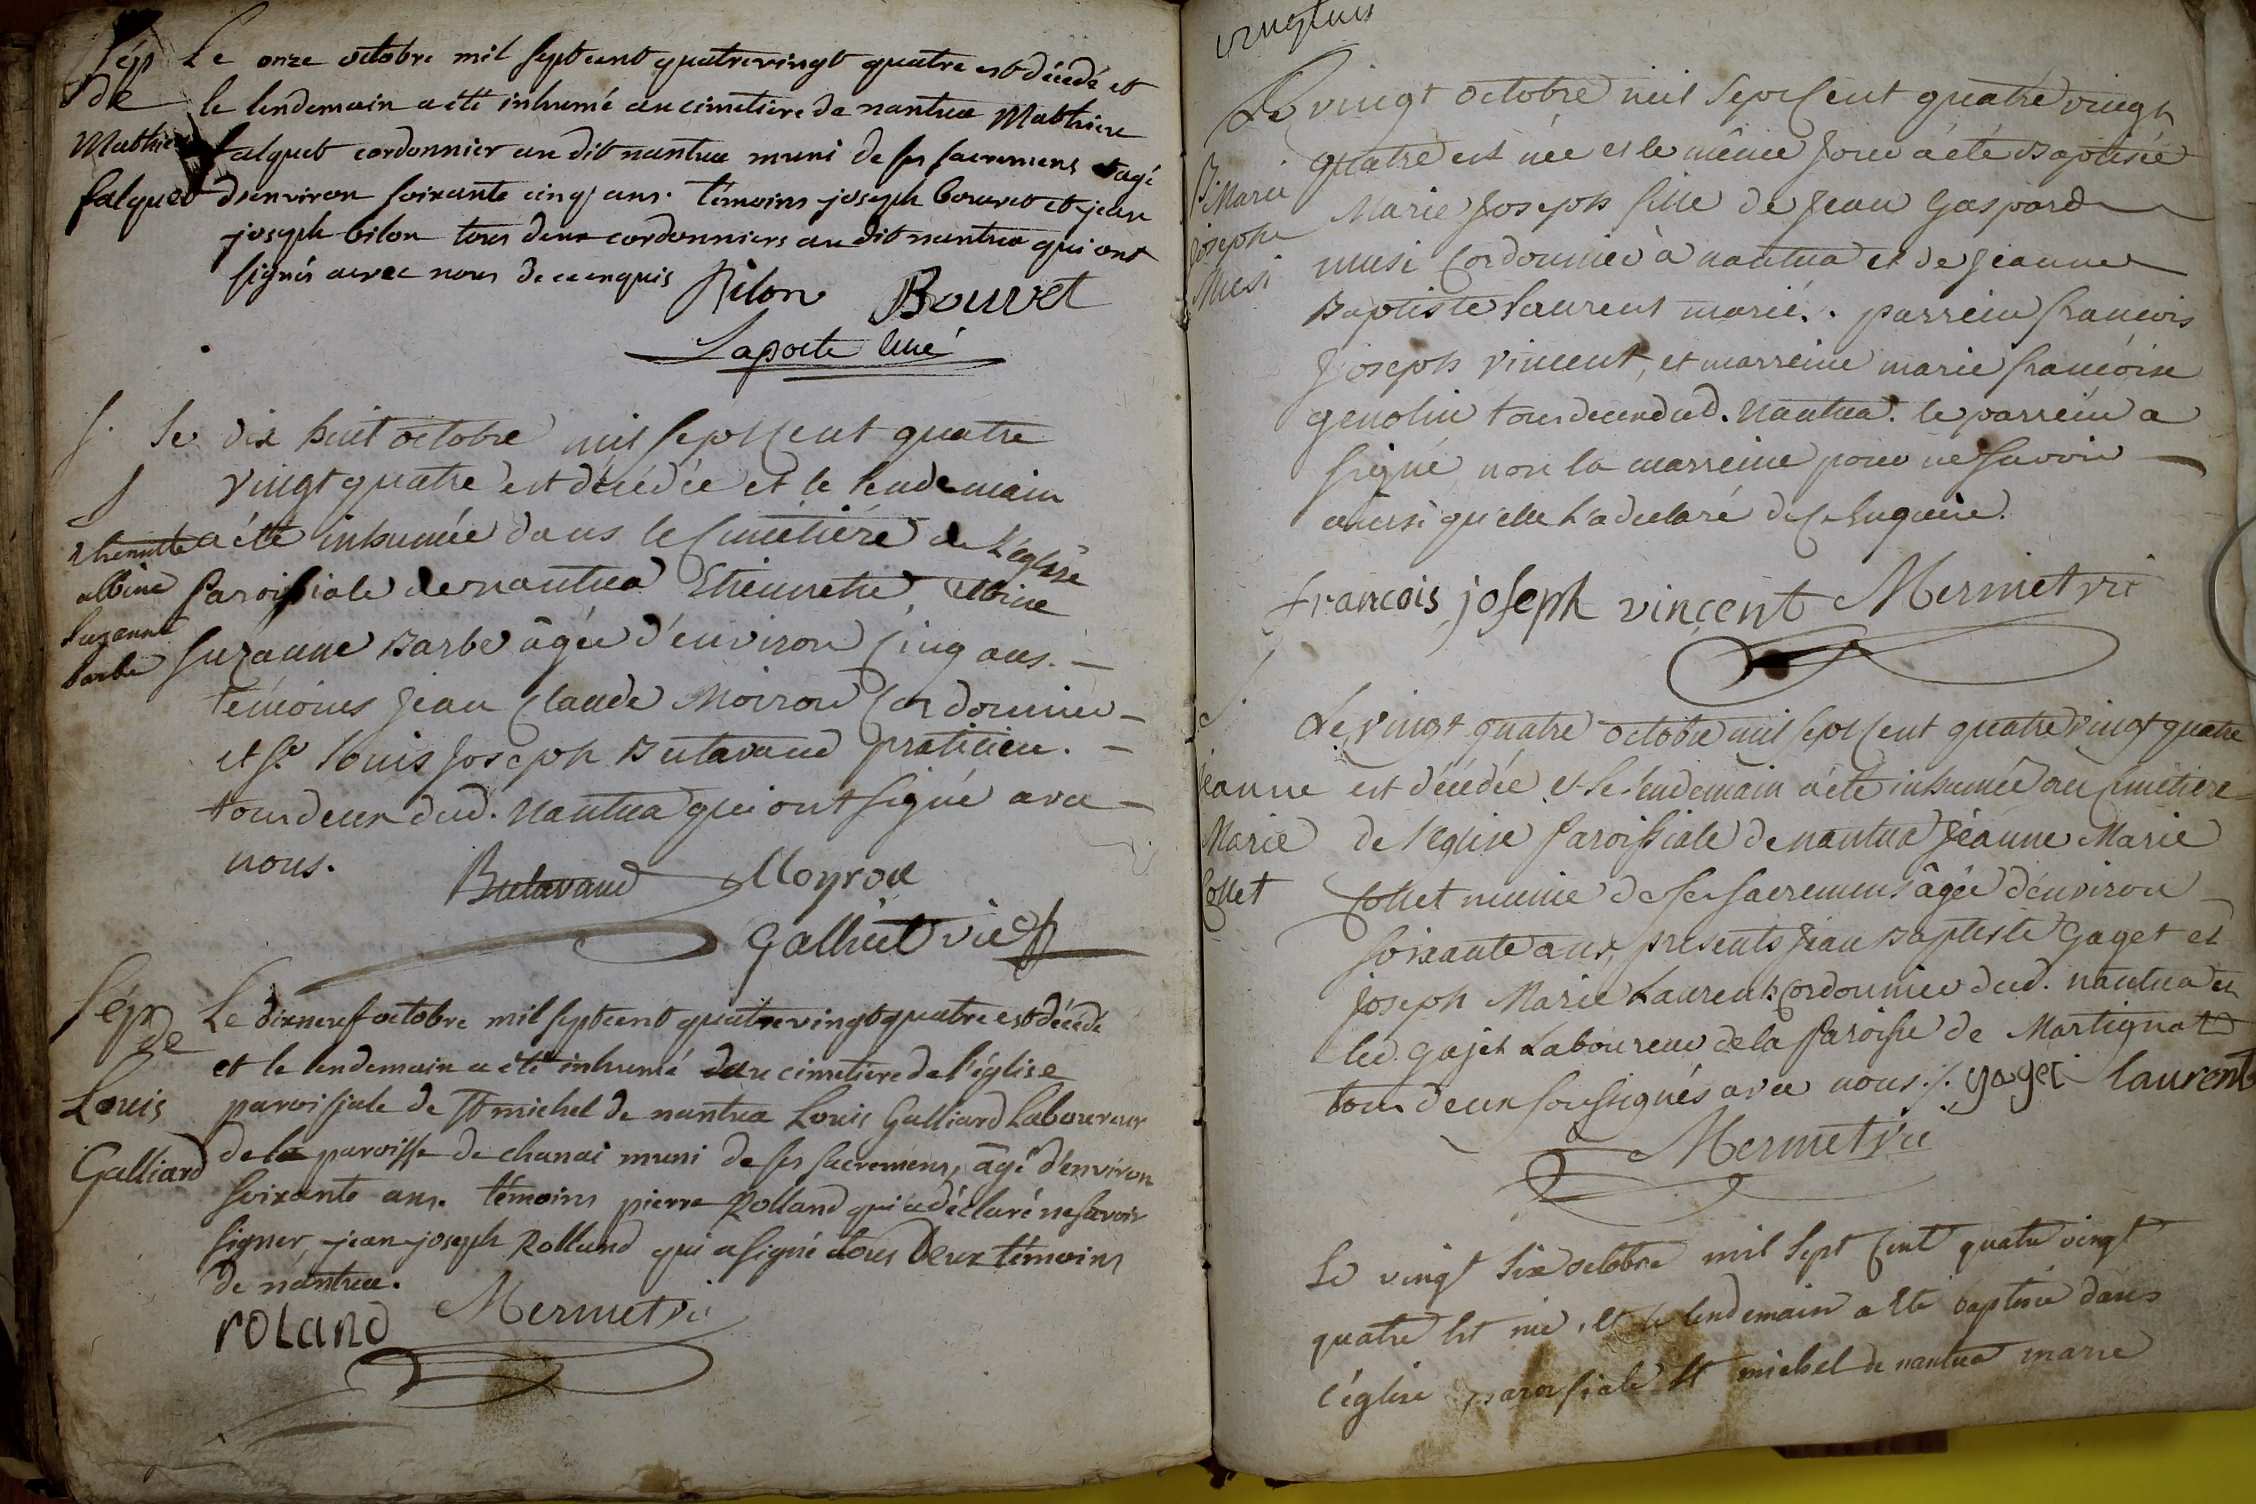 Sép Le onze octobre mil sept cent quatrevingt quatre est décédé et
de le lendemain a été inhumé au cimetiere de nantua Mathieu
Mathieu falquet cordonnier au dit nantua muni de ses sacremens et agé
falquet d'environ soixante cinq ans. témoins joseph bouvet et jean
joseph bilon tous deux cordonniers au dit nantua qui ont
signés avec nous de ce enquis
Bilon Bouvet
Laporte curé
S. Le dix huit octobre mil sept cent quatre
vingt quatre est décédée et le lendemain
Ethiennette a été inhumée dans le cimetiére de l'église
albine paroissiale de nantua Ethiennette albine
Suzanne
barbe Suzanne Barbe âgée d'environ cinq ans. —
témoins jean claude Moiron cordonnier —
et Sr. Louis joseph Butavand praticien. —
tous deux dud. Nantua qui ont signé avec —
nous.
Butavand Moyrou
Galliet vic
Sép Le dix neuf octobre mil sept cent quatrevingt quatre est décédé
de et le lendemain a été inhumé au cimetiere de l'église
Louis paroissiale de St michel de nantua Louis Galliard Laboureur
Galliard de la paroisse de chanai muni de ses sacremens, âgé d'environ
soixante ans. témoins pierre Rolland qui a déclaré ne savoir
signer, jean joseph Rolland qui a signé tous Deux témoins
de nantua.
roland Mermet vic
Le vingt octobre mil sept cent quatre vingt
quatre est née et le même jour a été Baptisée
B. Marie Marie Joseph fille de Jean Gaspard
Josephe musi cordonnier à nantua et de jeanne
Musi Baptiste Laurent mariés. parrein francois
joseph vincent, et marreine marie francoise
genolin tous deux dud. Nantua. le parrein a
signé non la marreine pour ne savoir —
ainsi qu'elle l'a declaré de ce Enquise.
francois joseph vincent Mermet vic
S. Le vingt quatre octobre mil sept cent quatre vingt quatre
jeanne est décédée et le lendemain a été inhumée au cimetiere
Marie de l'eglise paroissiale de nantua Jeanne Marie
Collet Collet munie de ses sacremens âgée d'environ
soixante ans, presents jean Baptiste Gaget et
joseph Marie Laurent cordonnier dud. nantua et
led. gajet Laboureur de la paroisse de Martignat
tous deux soussignés avec nous ./. gaget laurent
Mermet vic
Le vingt six octobre mil sept cent quatre vingt
quatre est née, et le lendemain a été baptisée dans
l'église paroissiale St michel de nantua marie